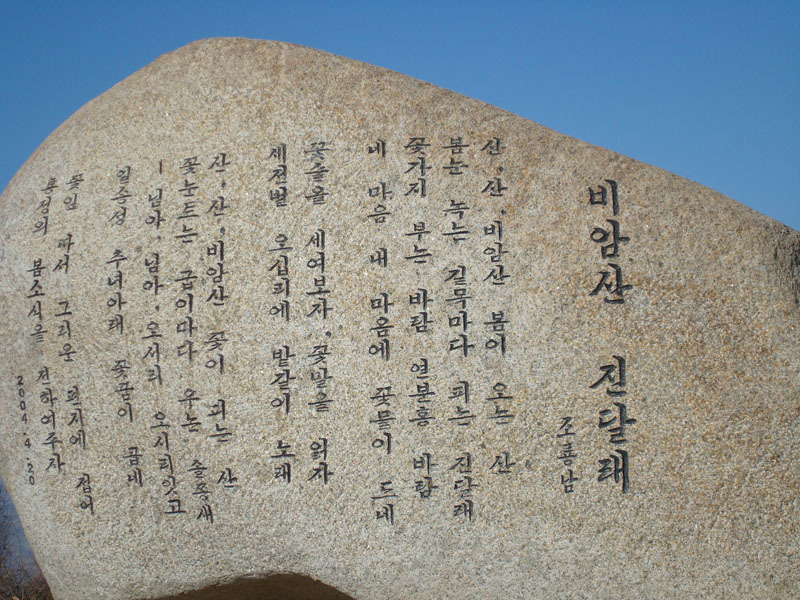 비암산 진달래
조룡남
산, 산, 비암산 봄이 오는 산
봄눈 녹는 길목마다 피는 진달래
꽃가지 부는 바람 연분홍 바람
네 마음 내 마음에 꽃물이 드네
꽃술을 세여보자, 꽃말을 읽자
세전벌 오십리에 밭갈이 노래
산, 산, 비암산 꽃이 피는 산
꽃눈트는 굽이마다 우는 솔종새
님아, 님아, 오시리 오시리잇고
일송정 추녀아래 꽃꿈이 곱네
꽃잎 따서 그리운 편지에 접어
룡정의 봄소식을 전하여주자
2004.4.20